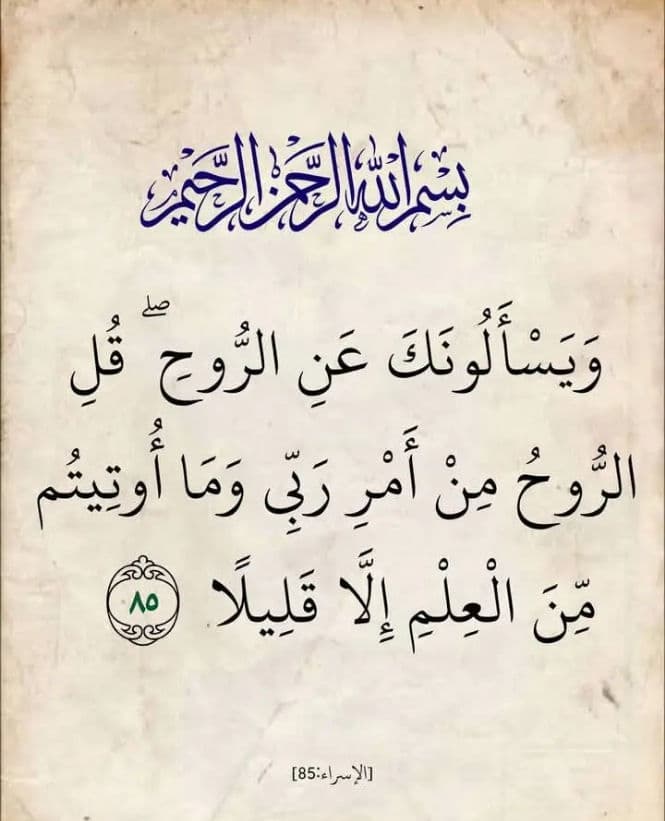 بِسْمِ اللَّهِ الرَّحْمَنِ الرَّحِيمِ
وَيَسْأَلُونَكَ عَنِ الرُّوحِ ۖ قُلِ
الرُّوحُ مِنْ أَمْرِ رَبِّي وَمَا أُوتِيتُم
مِّنَ الْعِلْمِ إِلَّا قَلِيلًا ٨٥
[الإسراء:85]